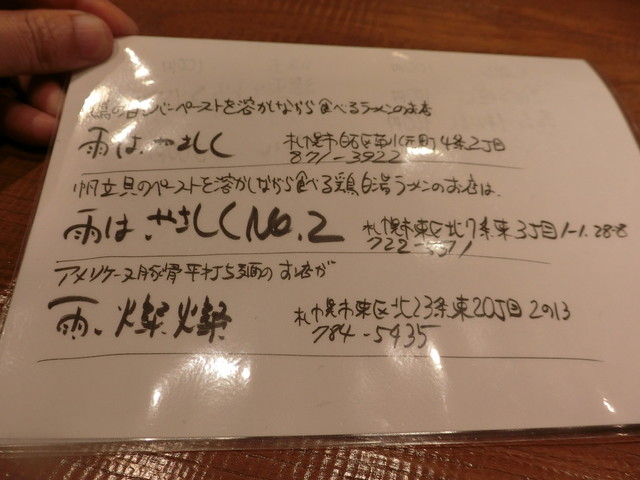 鶏の白レバーペーストを溶かしながら食べるラーメンのお店
雨は、やさしく 札幌市白石区菊水元町4条2丁目
871-3922
帆立貝のペーストを溶かしながら食べる鶏白湯ラーメンのお店は、
雨は、やさしくNo.2 札幌市東区北7条東3丁目1-1.28-8
722-
アメリケーヌ豚骨平打ち麺のお店が
雨、燦燦 札幌市東区北23条東20丁目2の13
784-5435